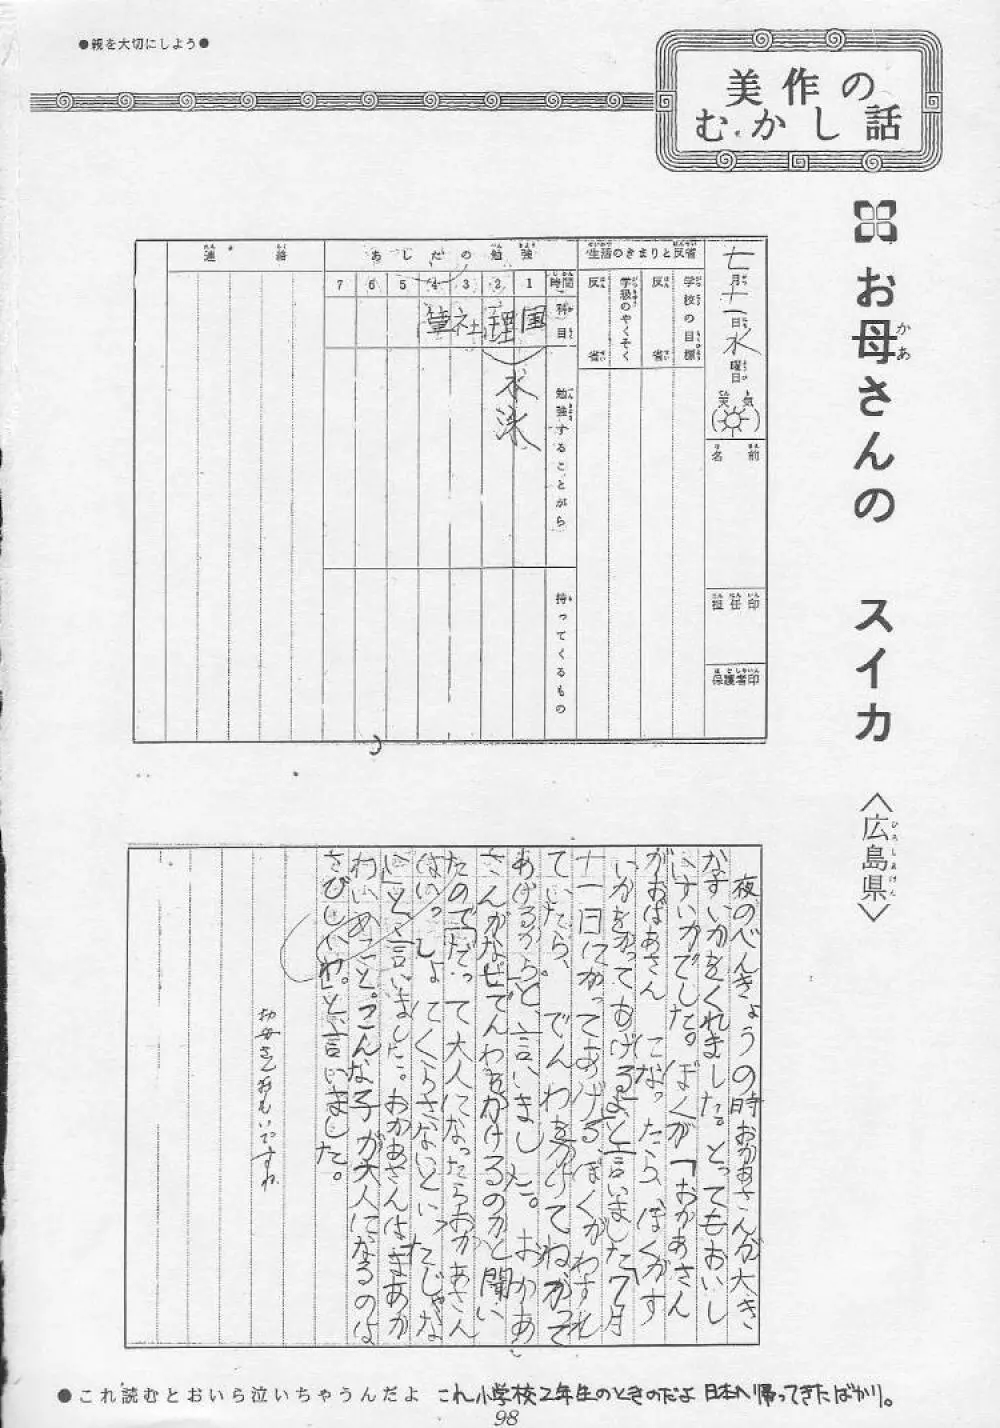 ●親を大切にしよう●
美作の
むかし話
お母さんの スイカ
かあ
〈広島県〉
ひろしまけん
七月十一日水曜日
天気
名前
担任印
保護者印
生活のきまりと反省
学校の目標
反省
学級のやくそく
反省
あしたの勉強
時間 1 2 3 4 5 6 7
科目 国 理 社 筆
勉強することがら
水泳
持ってくるもの
連絡
夜のべんきょうの時おかあさんが大き
なすいかをくれました。とってもおいし
いすいかでした。ぼくが「おかあさん
がおばあさん になったら、ぼくがす
いかをかってあげる」と言いました「7月
十一日にかってあげる、ぼくがわすれ
ていたら、でんわをかけてね かって
あげるから」と、言いました。おかあ
さんがなぜでんわをかけるのかと聞い
たので「だって大人になったらおかあさん
はいっしょにくらさないといったじゃな
い」と言いました。おかあさんは「まあか
わいいこと。こんな子が大人になるのは
さびしいわ。」と、言いました。
お母さんおもいですね
●これ読むとおいら泣いちゃうんだよ これ小学校2年生のときのだよ 日本へ帰ってきたばかり。
98